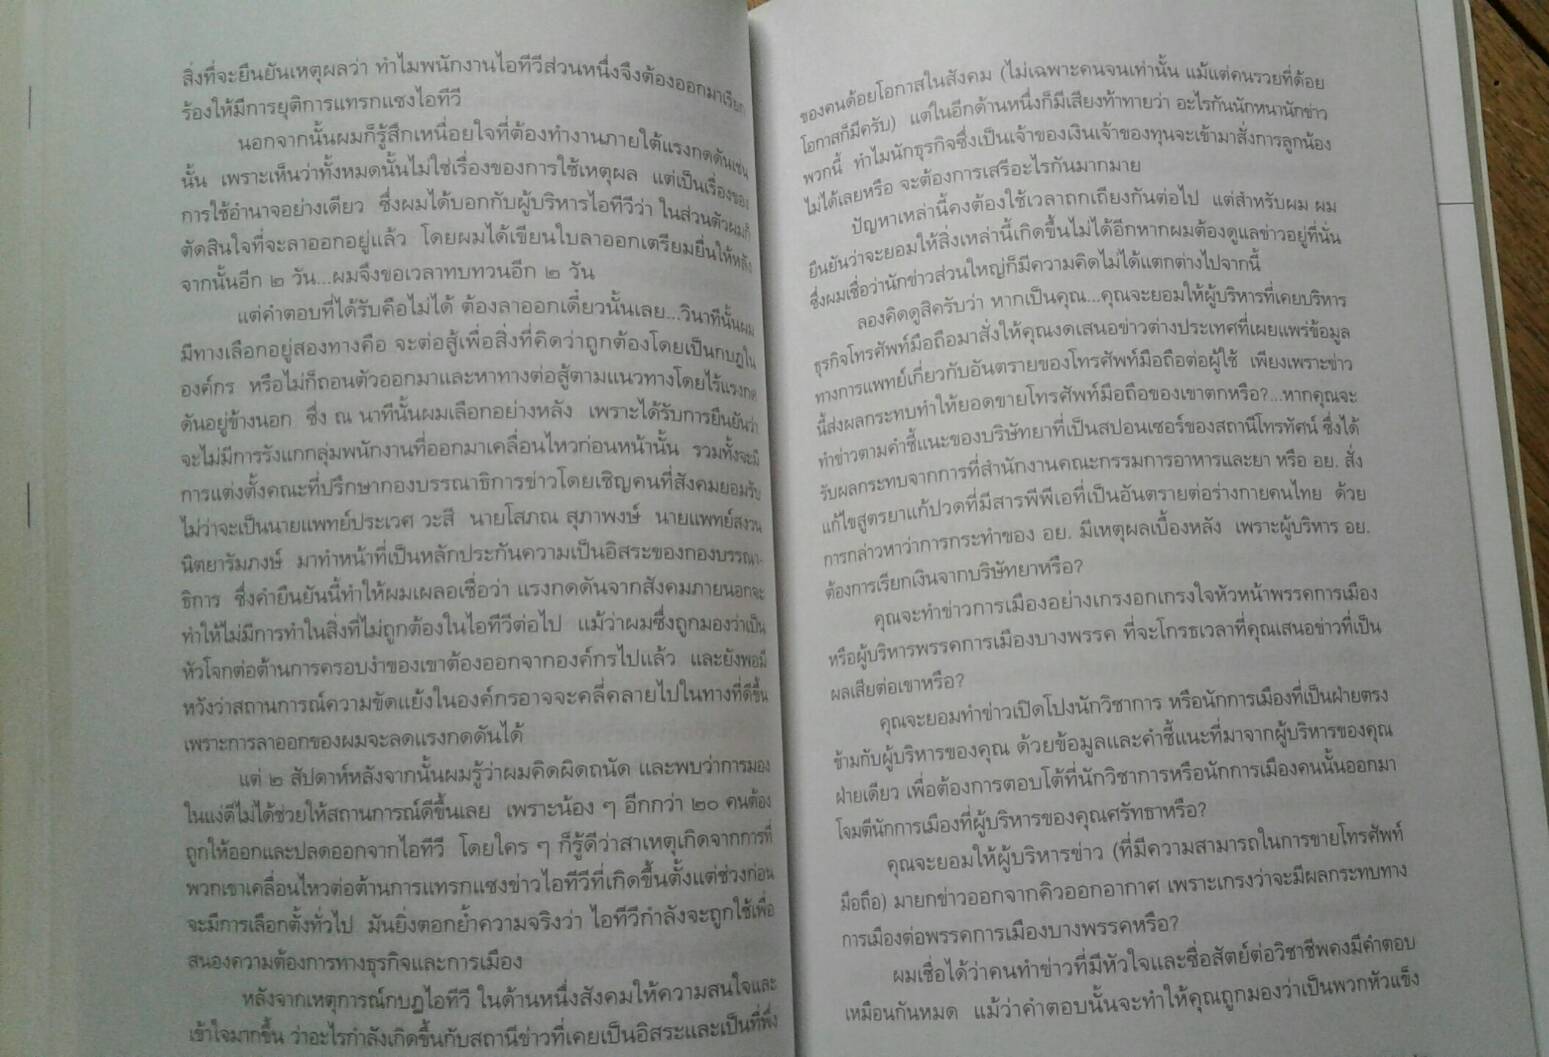 สิ่งที่จะยืนยันเหตุผลว่า ทำไมพนักงานไอทีวีส่วนหนึ่งจึงต้องออกมาเรียก
ร้องให้มีการยุติการแทรกแซงไอทีวี
นอกจากนั้นผมก็รู้สึกเหนื่อยใจที่ต้องทำงานภายใต้แรงกดดันเช่น
นั้น เพราะเห็นว่าทั้งหมดนั้นไม่ใช่เรื่องของการใช้เหตุผล แต่เป็นเรื่องของ
การใช้อำนาจอย่างเดียว ซึ่งผมได้บอกกับผู้บริหารไอทีวีว่า ในส่วนตัวผมก็
ตัดสินใจที่จะลาออกอยู่แล้ว โดยผมได้เขียนใบลาออกเตรียมยื่นให้หลัง
จากนั้นอีก ๒ วัน...ผมจึงขอเวลาทบทวนอีก ๒ วัน
แต่คำตอบที่ได้รับคือไม่ได้ ต้องลาออกเดี๋ยวนั้นเลย...วินาทีนั้นผม
มีทางเลือกอยู่สองทางคือ จะต่อสู้เพื่อสิ่งที่คิดว่าถูกต้องโดยเป็นกบฏใน
องค์กร หรือไม่ก็ถอนตัวออกมาและหาทางต่อสู้ตามแนวทางโดยไร้แรงกด
ดันอยู่ข้างนอก ซึ่ง ณ นาทีนั้นผมเลือกอย่างหลัง เพราะได้รับการยืนยันว่า
จะไม่มีการรังแกกลุ่มพนักงานที่ออกมาเคลื่อนไหวก่อนหน้านั้น รวมทั้งจะมี
การแต่งตั้งคณะที่ปรึกษากองบรรณาธิการข่าวโดยเชิญคนที่สังคมยอมรับ
ไม่ว่าจะเป็นนายแพทย์ประเวศ วะสี นายโสภณ สุภาพงษ์ นายแพทย์สงวน
นิตยารัมภงษ์ มาทำหน้าที่เป็นหลักประกันความเป็นอิสระของกองบรรณา-
ธิการ ซึ่งคำยืนยันนี้ทำให้ผมเผลอเชื่อว่า แรงกดดันจากสังคมภายนอกจะ
ทำให้ไม่มีการทำในสิ่งที่ไม่ถูกต้องในไอทีวีต่อไป แม้ว่าผมซึ่งถูกมองว่าเป็น
หัวโจกต่อต้านการครอบงำของเขาต้องออกจากองค์กรไปแล้ว และยังพอมี
หวังว่าสถานการณ์ความขัดแย้งในองค์กรอาจจะคลี่คลายไปในทางที่ดีขึ้น
เพราะการลาออกของผมจะลดแรงกดดันได้
แต่ ๒ สัปดาห์หลังจากนั้นผมรู้ว่าผมคิดผิดถนัด และพบว่าการมอง
ในแง่ดีไม่ได้ช่วยให้สถานการณ์ดีขึ้นเลย เพราะน้อง ๆ อีกกว่า ๒๐ คนต้อง
ถูกให้ออกและปลดออกจากไอทีวี โดยใคร ๆ ก็รู้ดีว่าสาเหตุเกิดจากการที่
พวกเขาเคลื่อนไหวต่อต้านการแทรกแซงข่าวไอทีวีที่เกิดขึ้นตั้งแต่ช่วงก่อน
จะมีการเลือกตั้งทั่วไป มันยิ่งตอกย้ำความจริงว่า ไอทีวีกำลังจะถูกใช้เพื่อ
สนองความต้องการทางธุรกิจและการเมือง
หลังจากเหตุการณ์กบฏไอทีวี ในด้านหนึ่งสังคมให้ความสนใจและ
เข้าใจมากขึ้น ว่าอะไรกำลังเกิดขึ้นกับสถานีข่าวที่เคยเป็นอิสระและเป็นที่พึ่ง
ของคนด้อยโอกาสในสังคม (ไม่เฉพาะคนจนเท่านั้น แม้แต่คนรวยที่ด้อย
โอกาสก็มีครับ) แต่ในอีกด้านหนึ่งก็มีเสียงท้าทายว่า อะไรกันนักหนานักข่าว
พวกนี้ ทำไมนักธุรกิจซึ่งเป็นเจ้าของเงินเจ้าของทุนจะเข้ามาสั่งการลูกน้อง
ไม่ได้เลยหรือ จะต้องการเสรีอะไรกันมากมาย
ปัญหาเหล่านี้คงต้องใช้เวลาถกเถียงกันต่อไป แต่สำหรับผม ผม
ยืนยันว่าจะยอมให้สิ่งเหล่านี้เกิดขึ้นไม่ได้อีกหากผมต้องดูแลข่าวอยู่ที่นั่น
ซึ่งผมเชื่อว่านักข่าวส่วนใหญ่ก็มีความคิดไม่ได้แตกต่างไปจากนี้
ลองคิดดูสิครับว่า หากเป็นคุณ...คุณจะยอมให้ผู้บริหารที่เคยบริหาร
ธุรกิจโทรศัพท์มือถือมาสั่งให้คุณงดเสนอข่าวต่างประเทศที่เผยแพร่ข้อมูล
ทางการแพทย์เกี่ยวกับอันตรายของโทรศัพท์มือถือต่อผู้ใช้ เพียงเพราะข่าว
นี้ส่งผลกระทบทำให้ยอดขายโทรศัพท์มือถือของเขาตกหรือ?...หากคุณจะ
ทำข่าวตามคำชี้แนะของบริษัทยาที่เป็นสปอนเซอร์ของสถานีโทรทัศน์ ซึ่งได้
รับผลกระทบจากการที่สำนักงานคณะกรรมการอาหารและยา หรือ อย. สั่ง
แก้ไขสูตรยาแก้ปวดที่มีสารพีพีเอที่เป็นอันตรายต่อร่างกายคนไทย ด้วย
การกล่าวหาว่าการกระทำของ อย. มีเหตุผลเบื้องหลัง เพราะผู้บริหาร อย.
ต้องการเรียกเงินจากบริษัทยาหรือ?
คุณจะทำข่าวการเมืองอย่างเกรงอกเกรงใจหัวหน้าพรรคการเมือง
หรือผู้บริหารพรรคการเมืองบางพรรค ที่จะโกรธเวลาที่คุณเสนอข่าวที่เป็น
ผลเสียต่อเขาหรือ?
คุณจะยอมทำข่าวเปิดโปงนักวิชาการ หรือนักการเมืองที่เป็นฝ่ายตรง
ข้ามกับผู้บริหารของคุณ ด้วยข้อมูลและคำชี้แนะที่มาจากผู้บริหารของคุณ
ฝ่ายเดียว เพื่อต้องการตอบโต้ที่นักวิชาการหรือนักการเมืองคนนั้นออกมา
โจมตีนักการเมืองที่ผู้บริหารของคุณศรัทธาหรือ?
คุณจะยอมให้ผู้บริหารข่าว (ที่มีความสามารถในการขายโทรศัพท์
มือถือ) มายกข่าวออกจากคิวออกอากาศ เพราะเกรงว่าจะมีผลกระทบทาง
การเมืองต่อพรรคการเมืองบางพรรคหรือ?
ผมเชื่อได้ว่าคนทำข่าวที่มีหัวใจและซื่อสัตย์ต่อวิชาชีพคงมีคำตอบ
เหมือนกันหมด แม้ว่าคำตอบนั้นจะทำให้คุณถูกมองว่าเป็นพวกหัวแข็ง